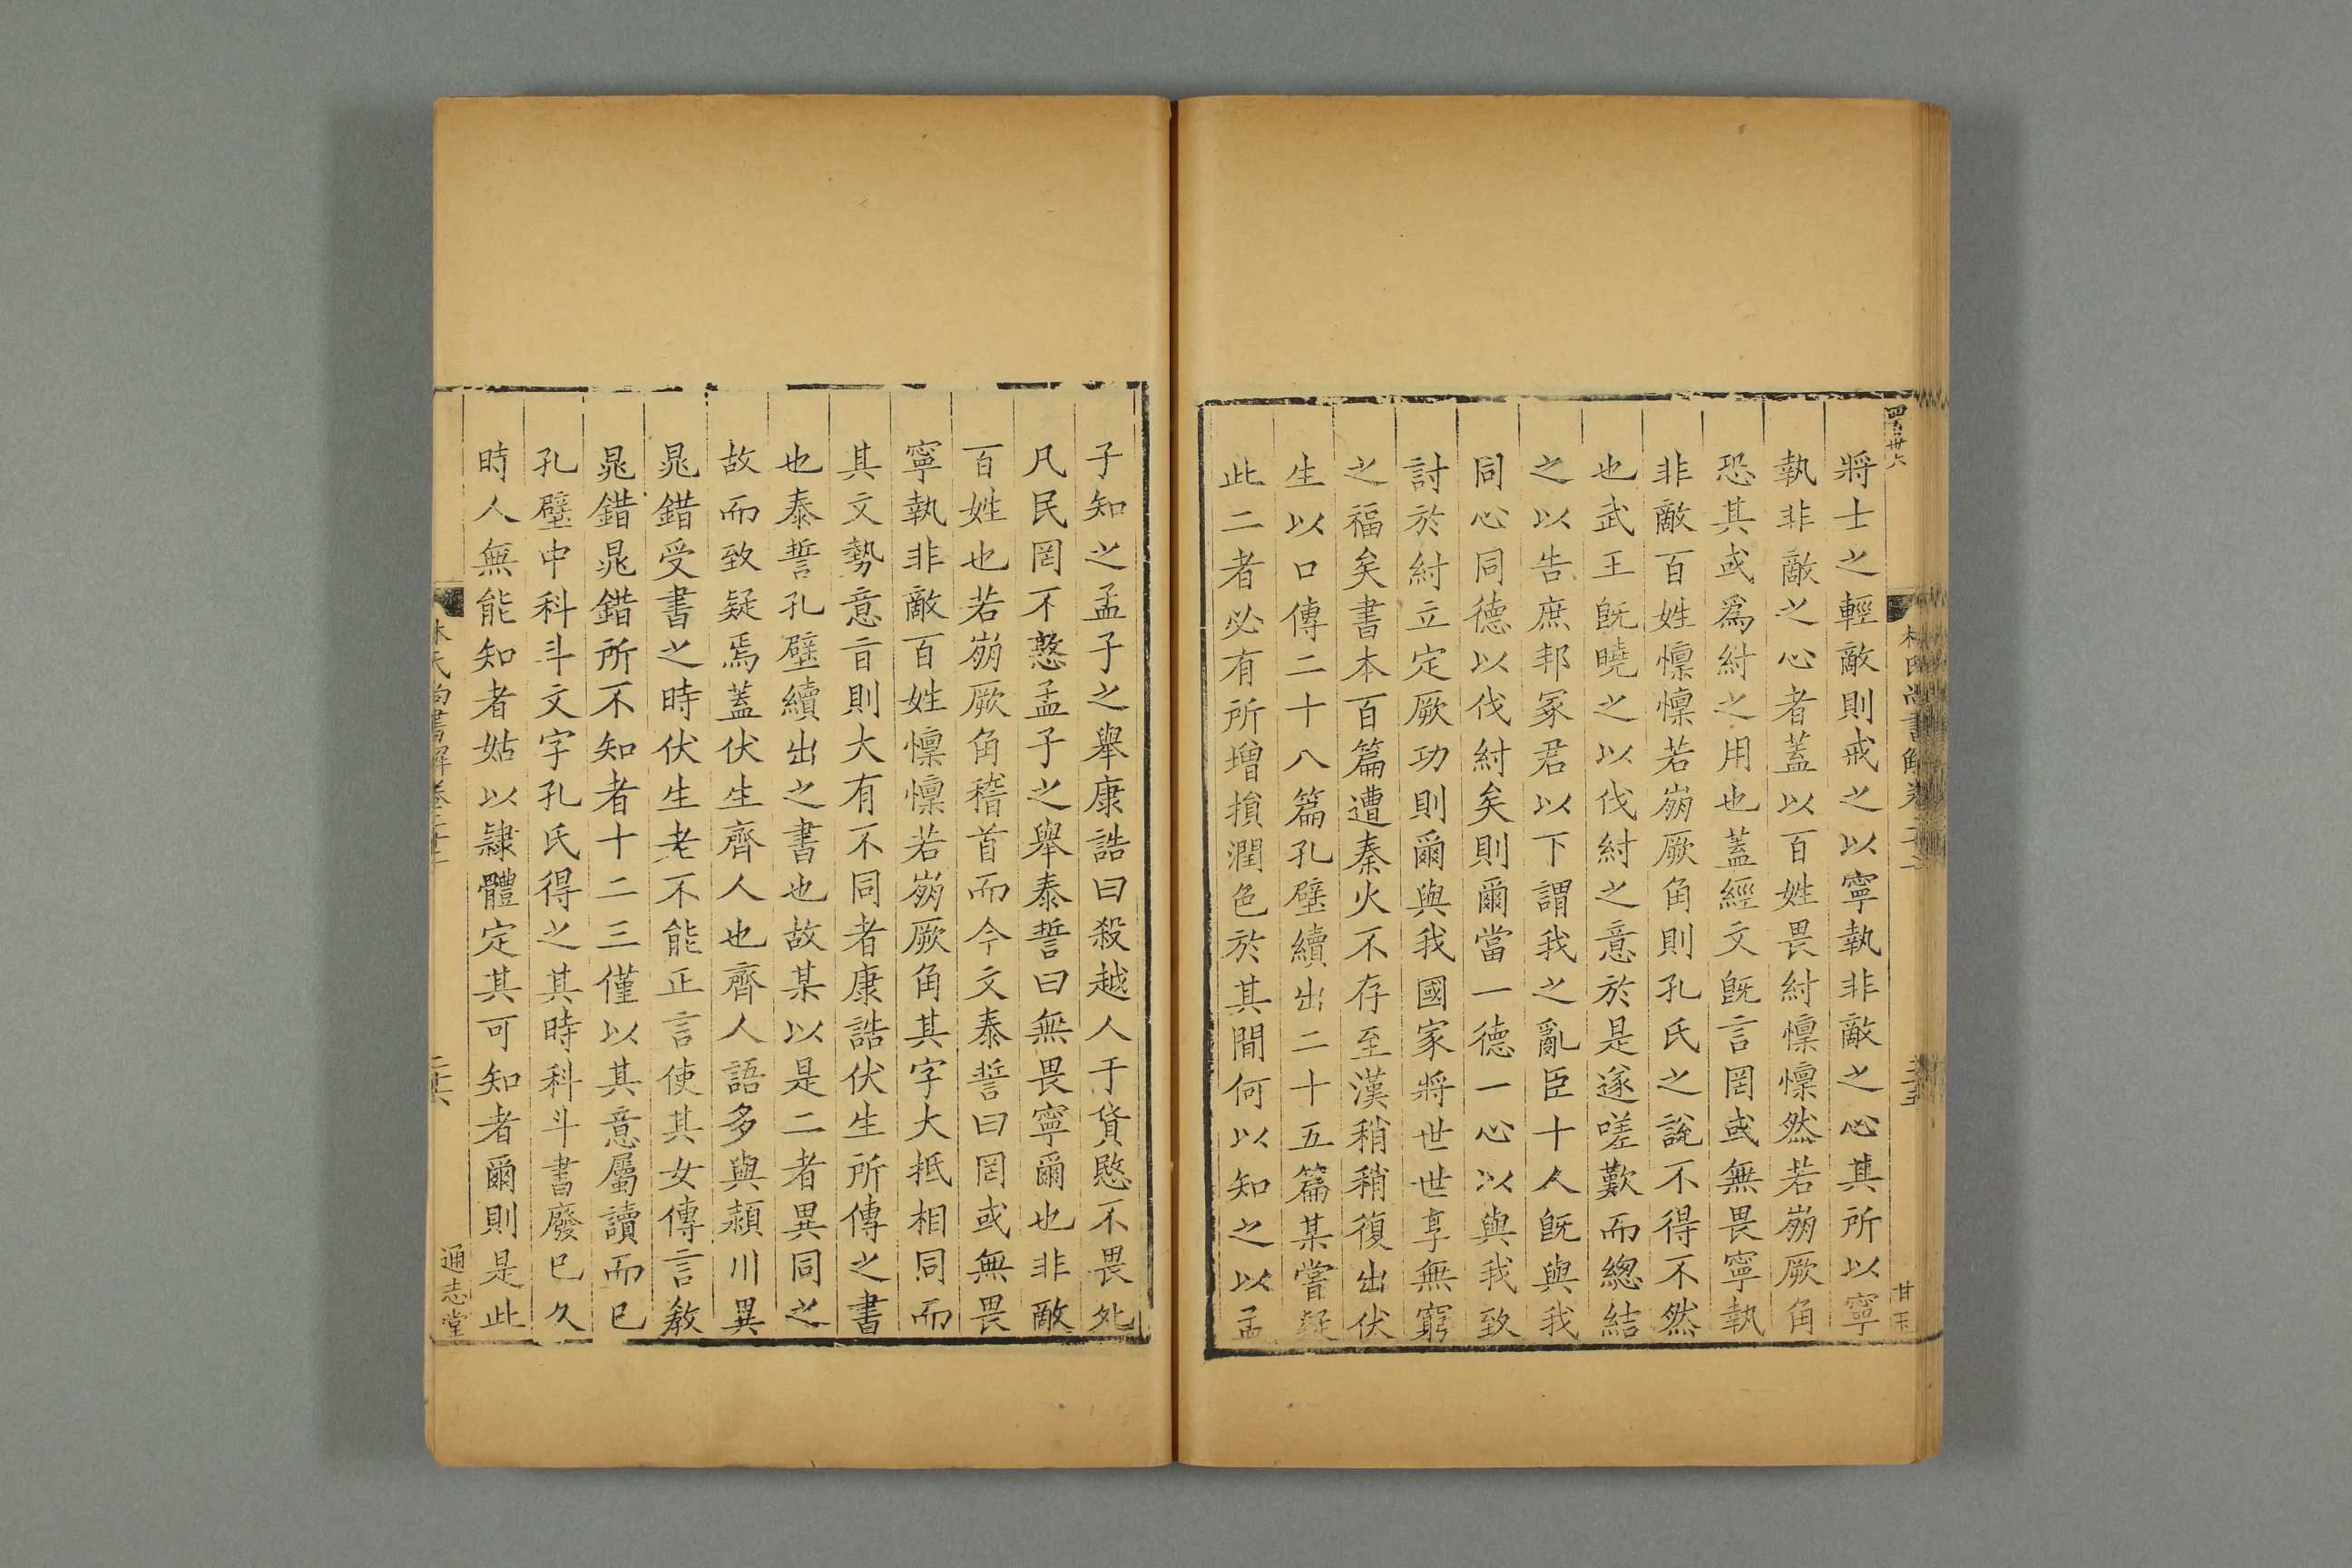 將士之輕敵則戒之以寧執非敵之心其所以寧
執非敵之心者蓋以百姓畏紂懍懍然若崩厥角
恐其或爲紂之用也蓋經文旣言罔或無畏寧執
非敵百姓懍懍若崩厥角則孔氏之說不得不然
也武王旣曉之以伐紂之意於是遂嗟歎而緫結
之以告庶邦冢君以下謂我之亂臣十人旣與我
同心同德以伐紂矣則爾當一德一心以與我致
討於紂立定厥功則爾與我國家將世世享無窮
之福矣書本百篇遭秦火不存至漢稍稍復出伏
生以口傳二十八篇孔壁續出二十五篇某嘗疑
此二者必有所增損潤色於其間何以知之以孟
子知之孟子之舉康誥曰殺越人于貨愍不畏死
凡民罔不憝孟子之舉泰誓曰無畏寧爾也非敵
百姓也若崩厥角稽首而今文泰誓曰罔或無畏
寧執非敵百姓懍懍若崩厥角其字大抵相同而
其文勢意旨則大有不同者康誥伏生所傳之書
也泰誓孔壁續出之書也故某以是二者異同之
故而致疑焉蓋伏生齊人也齊人語多與潁川異
晁錯受書之時伏生老不能正言使其女傳言教
晁錯晁錯所不知者十二三僅以其意屬讀而已
孔壁中科斗文字孔氏得之其時科斗書廢已久
時人無能知者姑以隸體定其可知者爾則是此
通志堂